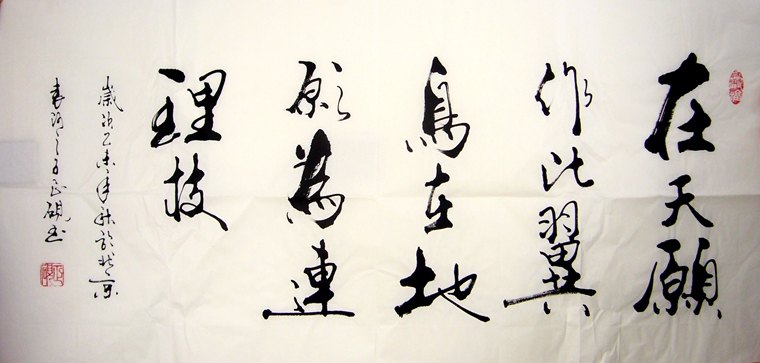 在天願
作比翼
鳥在地
願為連
理枝
歲次乙未年秋於北京
河之子正硯書